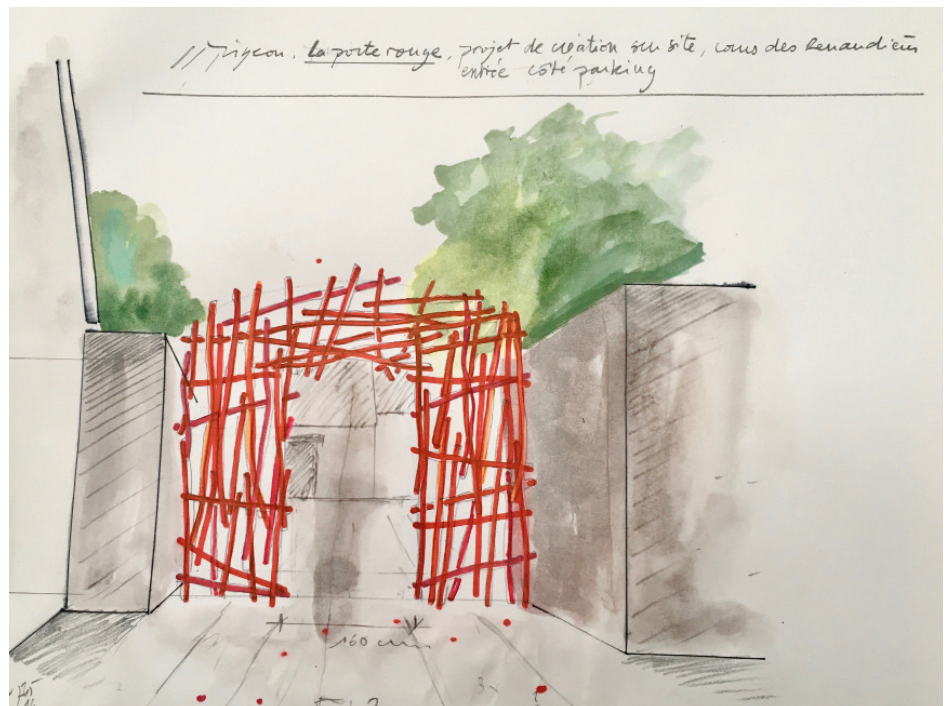 Pigeon. la porte rouge, projet de création sur site, cours des Renaudières
entrée côté parking
160 cm
3x